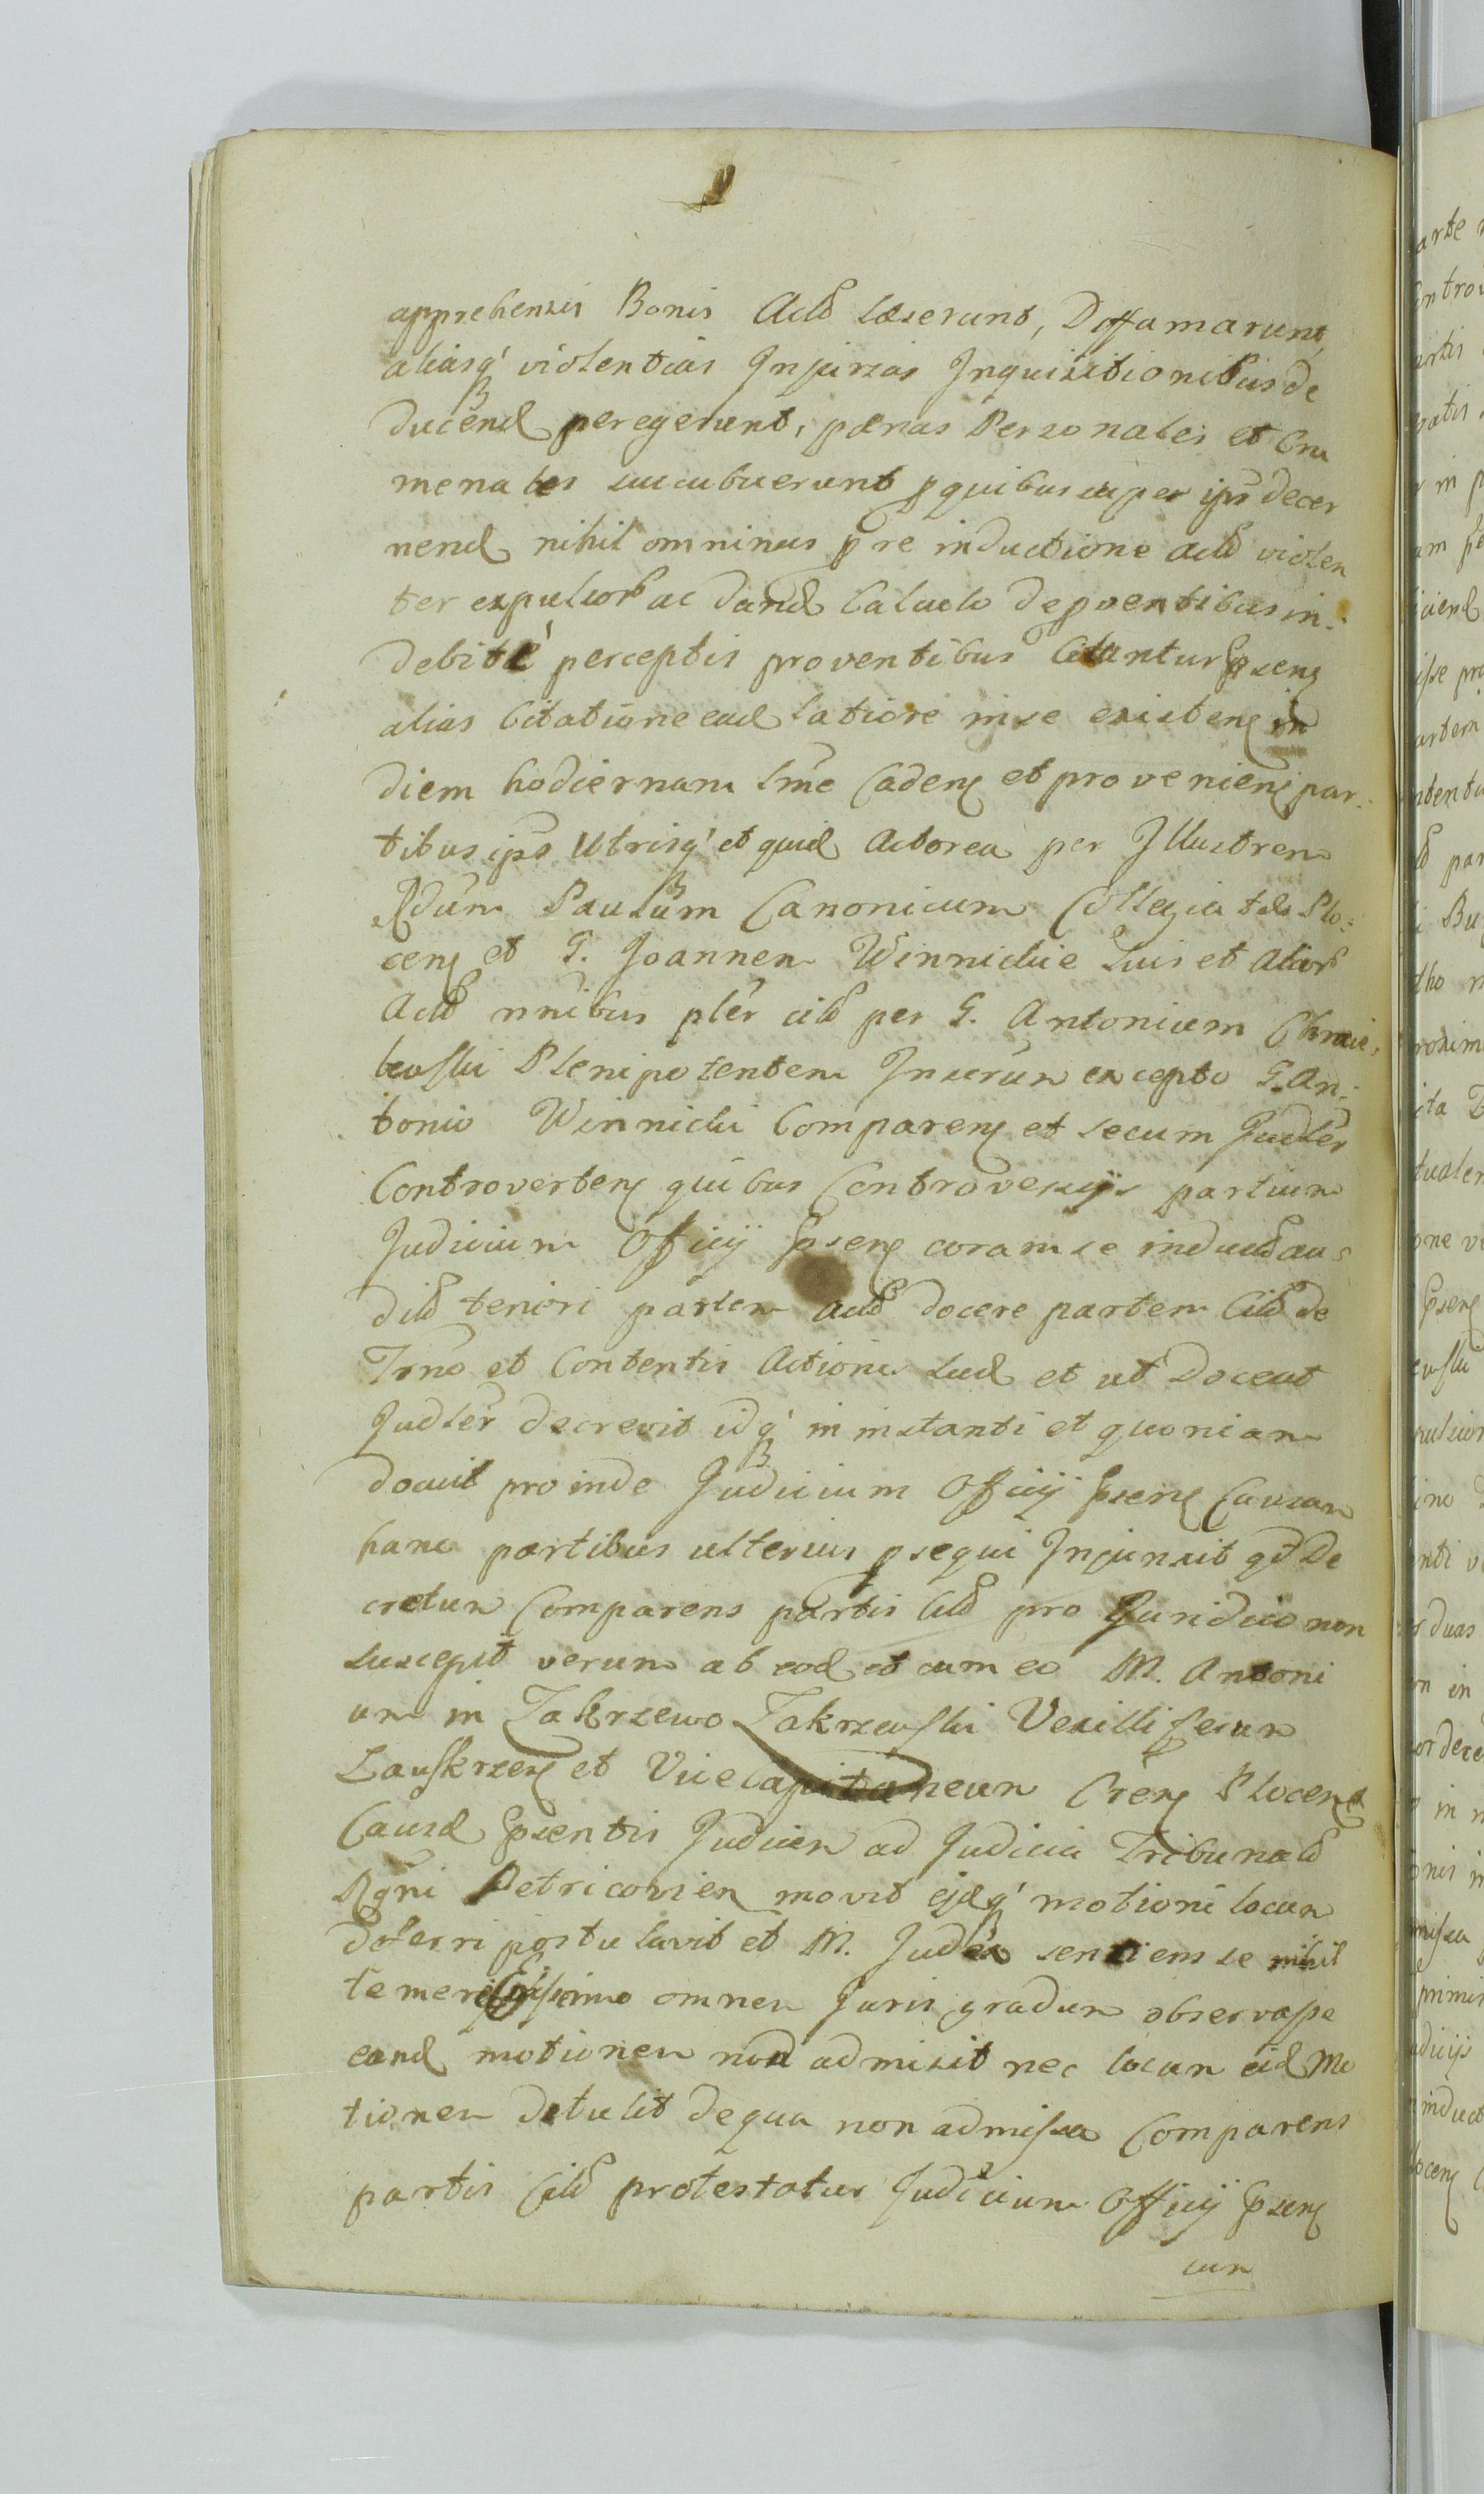 apprehensis Bonis Actõ læserunt, Diffamarunt,
aliasq' violentias Injurias Inquisitionibus de
ducend peregerunt, pænas Personales et Cru
menales succubuerunt p quibus super ips decer
nend nihil ominus p re inductione actõ violen
ter expulsor ac dand Calculo de pventibus in-
debité perceptis proventibus Citantur Ppsens
alias Citatione ead latiore in se existens in
diem hodiernam lme Cadens et proveniens par-
tibus ips Utrisq' et quid Actorea per Illustrem
Rdum Paulum Canonicum Collegiatæ Plo-
cens et G. Joannem Winnickie suis et alior
Actõ nnibus pler citõ per G. Antonium Chmie-
lewski Plenipotentem Insrum excepto G. An-
tonio Winnicki Comparens et secum Judler
Controvertens quibus Controversijs partium
Judicium Officij Ppsens coram se inductõ au-
ditõ teneri partem actõ docere partem Citõ de
Trno et Contentis Actionis sud et ut Doceat
Judler decrevit idq' in instanti et quoniam
docuit proinde Judicium Officij Ppsens Causam
hanc partibus ulterius psequi Injunxit qd De
cretum Comparens partis Citõ pro Juridico non
suscepit verum ab eod et cum eo M. Antoni
um in Zakrzewo Zakrzewski Vexilliferum
Lauskrzens et Vicecapitaneum Crens Plocens
Causæ Ppsentis Judicem ad Judicia Tribunalõ
Rgni Petricovien movit ejdq' motioni locum
deferri postulavit et M. Judex sentiens se nihil
temere omnem Juris gradum observasse
eand motionem non admisit nec locum eid Mo
tionem detulit de qua non admissa Comparens
partis Citõ protestatur Judicium Officij Ppsens
cum